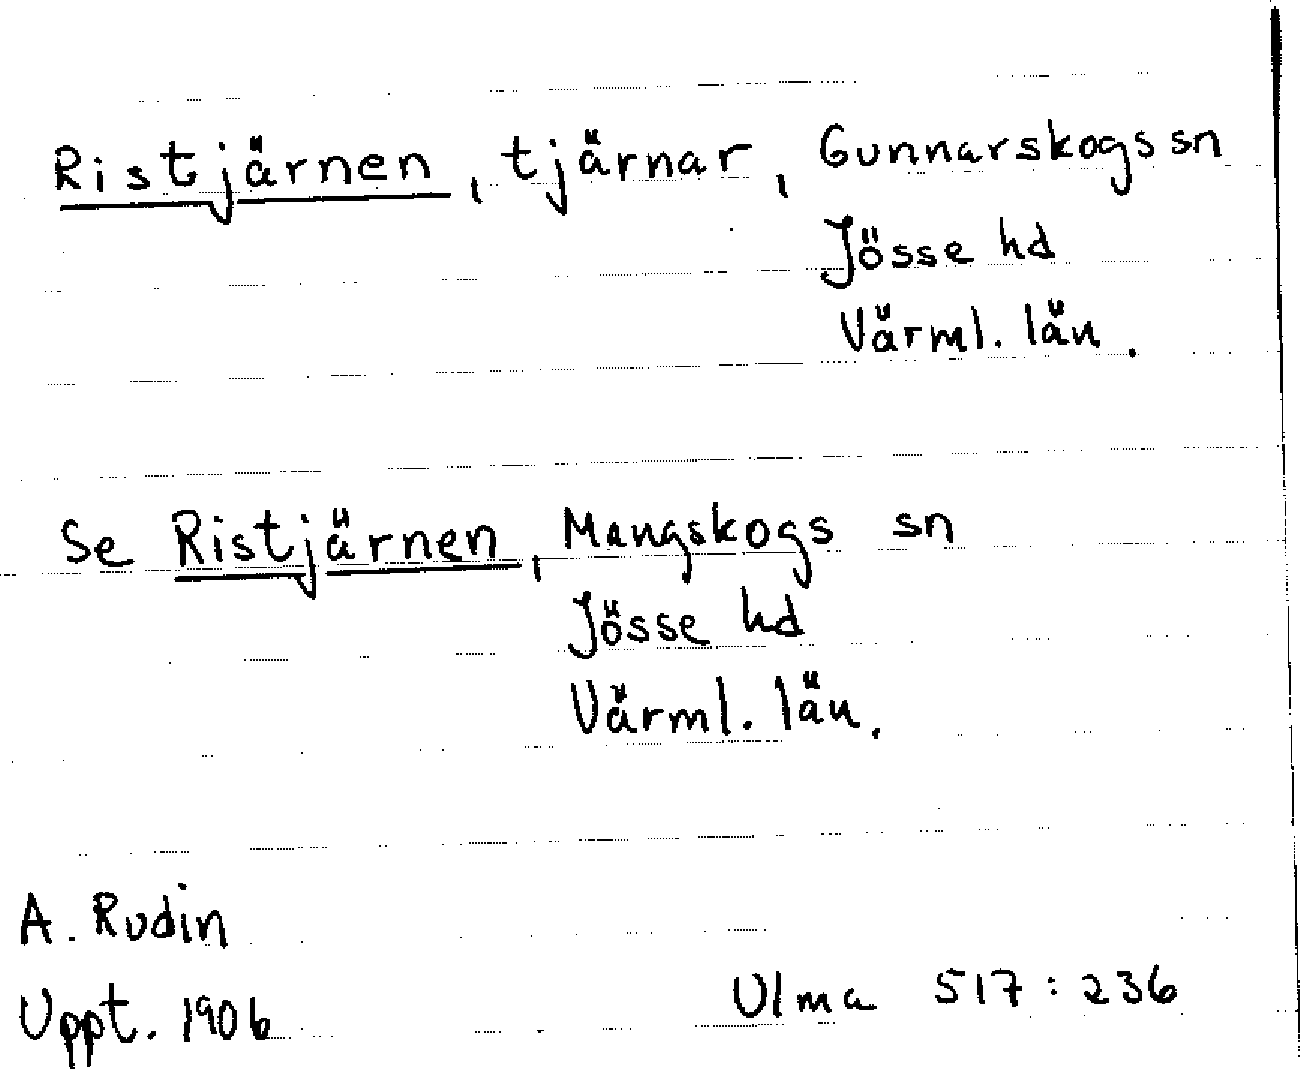 Ristjärnen, tjärnar, Gunnarskogs sn
Jösse hd
Värml. län.
Se Ristjärnen, Mangskogs sn
Jösse hd
Värml. län.
A. Rudin
Uppt. 1906
Ulma 517:236